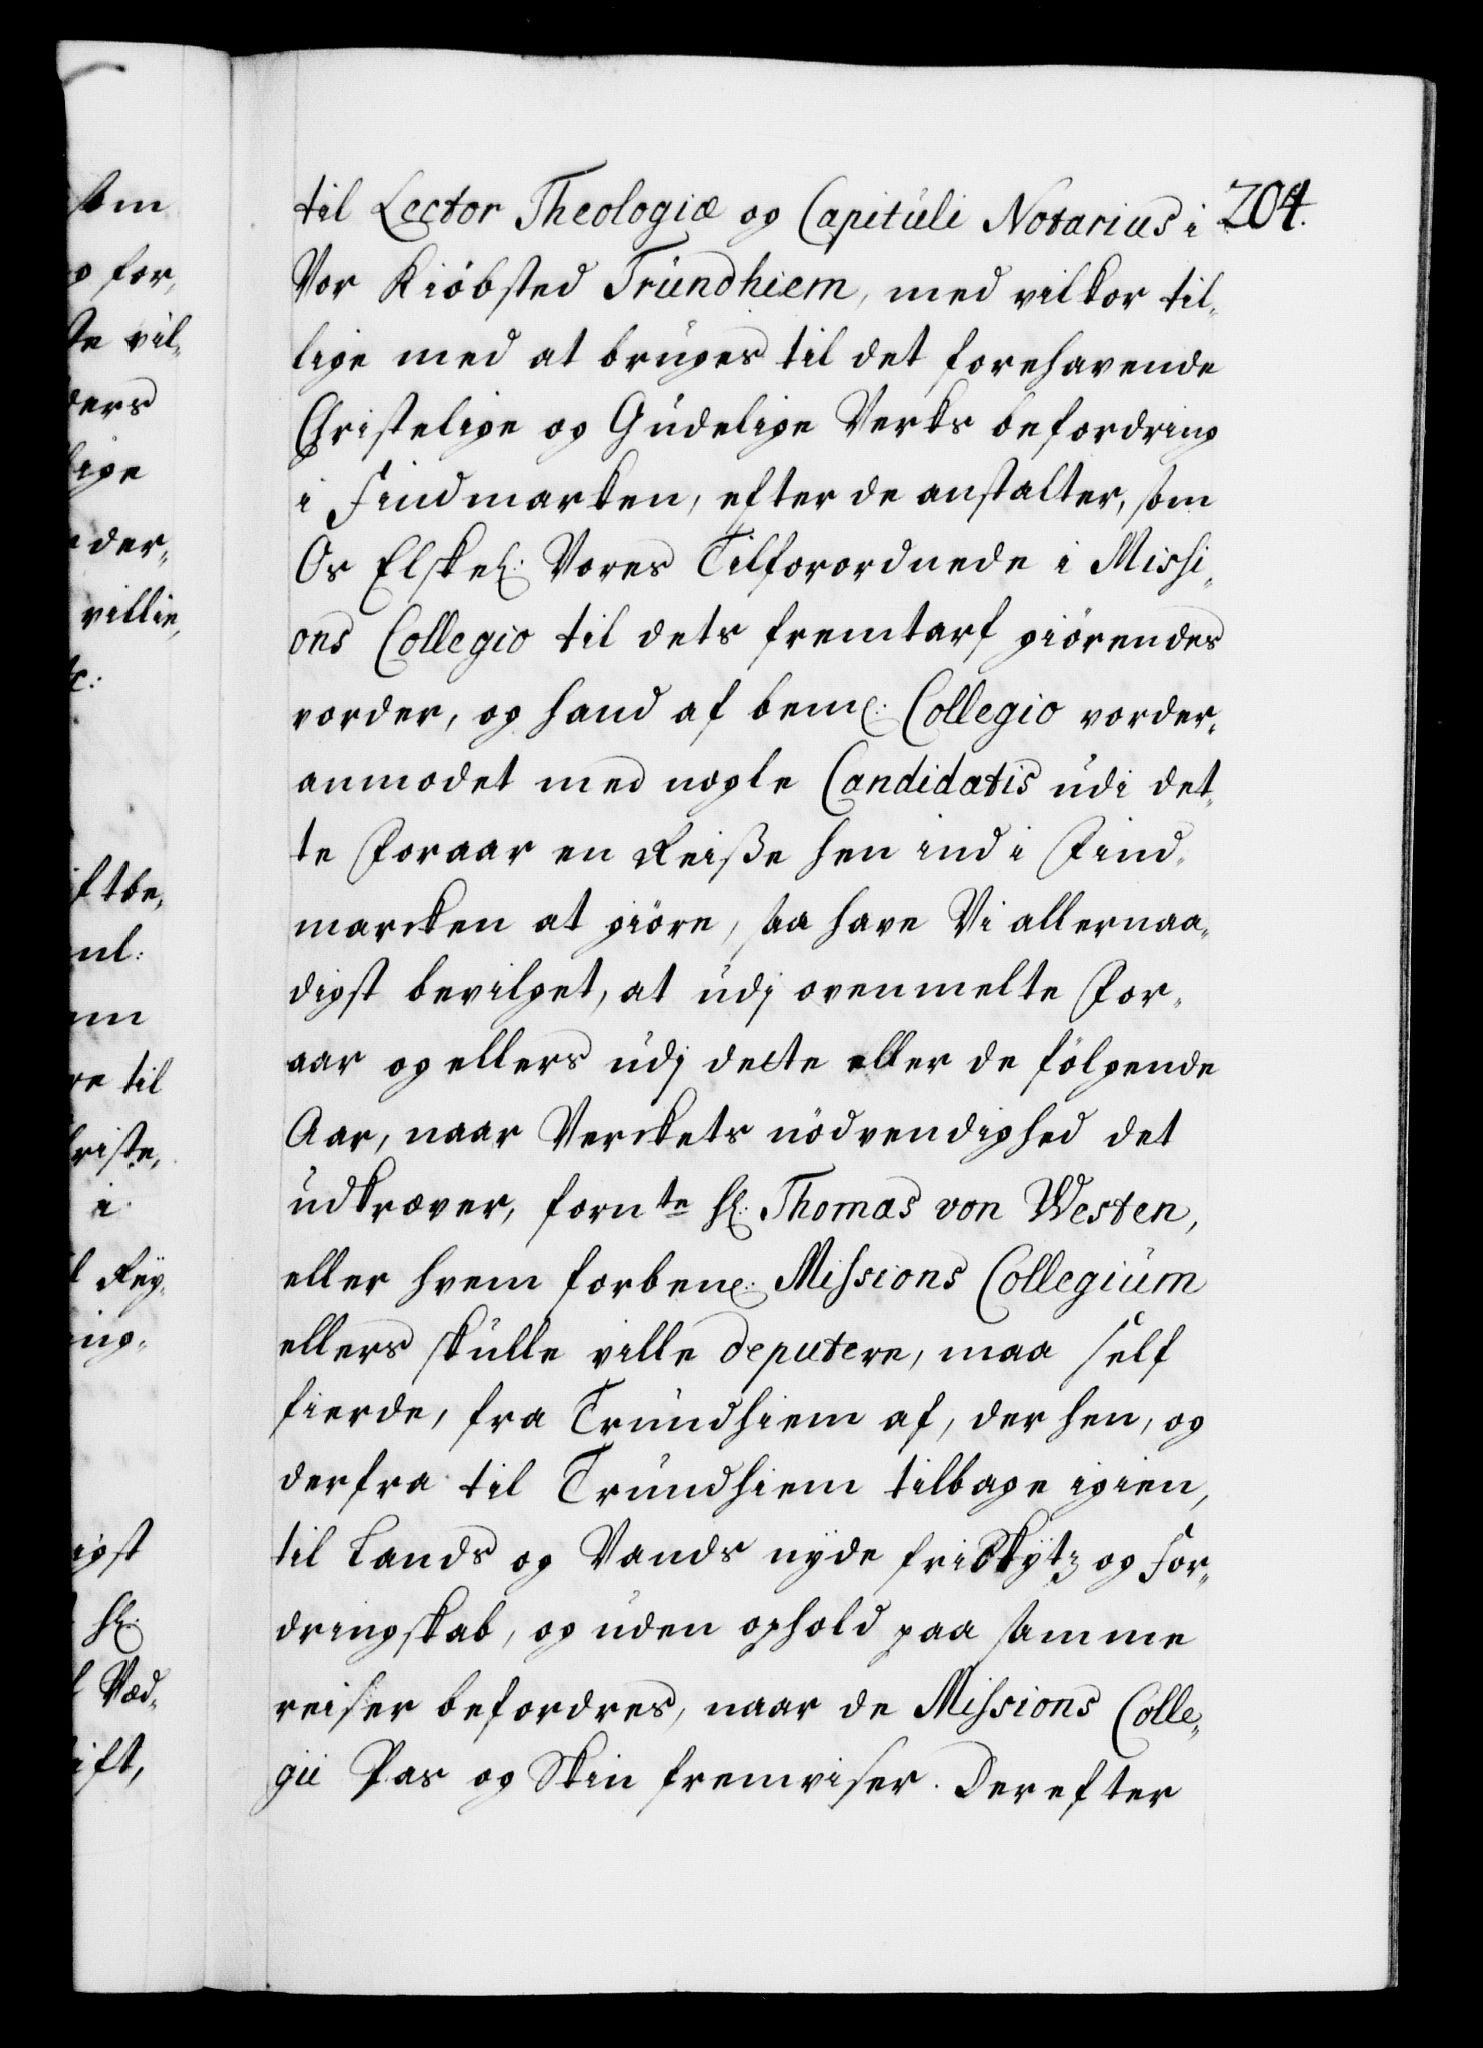 204.
til Lector Theologiæ og Capituli Notarius i
Vor Kiøbsted Trundhiem, med vilkor til-
lige med at bruges til det forehavende
Christelige og Gudelige Verks befordring
i Findmarken, efter de anstalter, som
Os Elskel: Vores Tilforordnede i Missi-
ons Collegio til dets fremtarf giørendes
vorder, og hand af bem: Collegio vorder
anmodet med nogle Candidatis udi det-
te Foraar en Reiße hen ind i Find-
marcken at giøre, saa have Vi allernaa-
digst bevilget, at udj ovenmelte For-
aar og ellers udj dette eller de følgende
Aar, naar Verckets nødvendighed det
udkræver, fornte Hr: Thomas von Westen,
eller hvem forbem: Missions Collegium
ellers skulle ville deputere, maa self
fierde, fra Trundhiem af, der hen, og
derfra til Trundhiem tilbage igien,
til Lands og Vands nyde fri Skytz og For-
dringskab, og uden ophold paa samme
reiser befordres, naar de Missions Colle-
gii Pas og Skin fremviser. Derefter